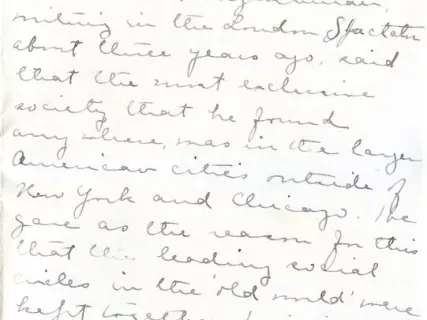 writing in the London Spectator
about three years ago, said
that the most exclusive
society that he found
any where, was in the larger
American cities outside of
New York and Chicago. He
gave as the reason for this
that the leading social
circles in the 'old world' were
kept together